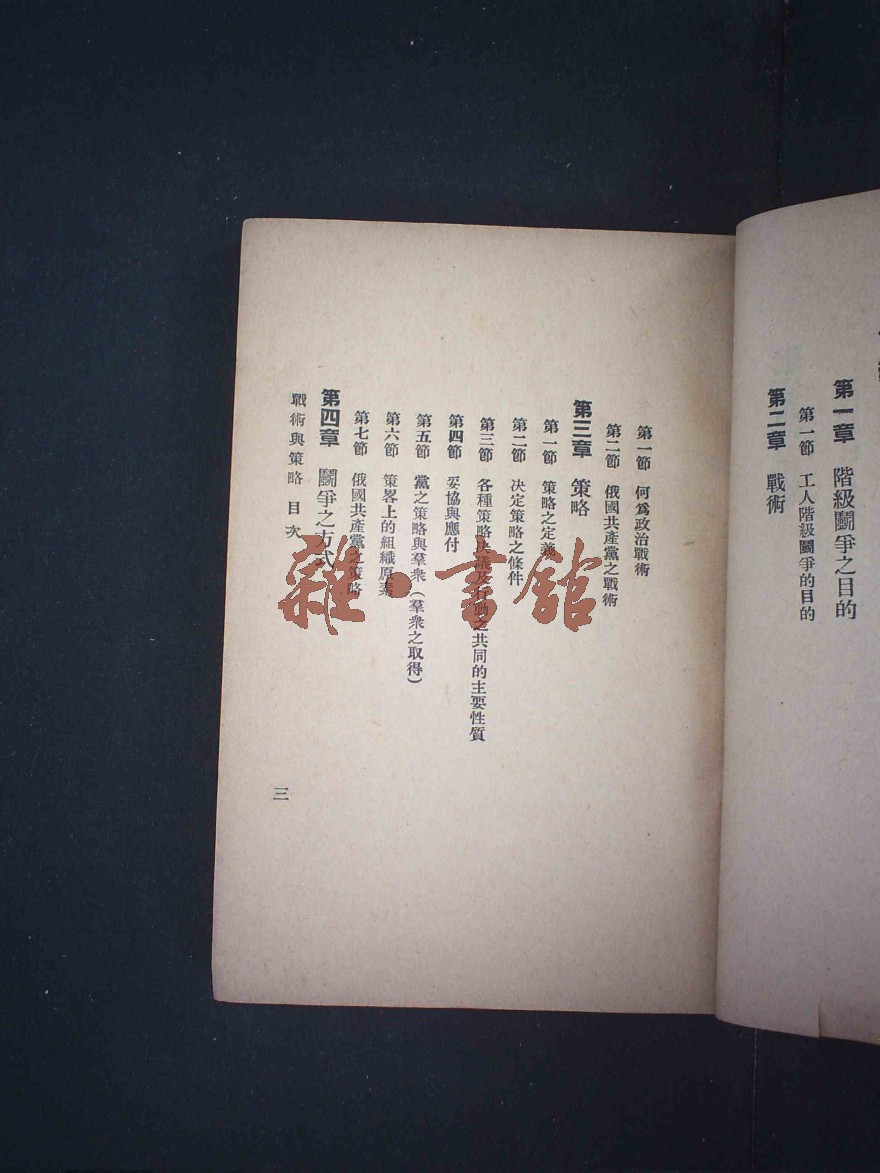 第一章 階級鬭爭之目的
第一節 工人階級鬭爭的目的
第二章 戰術
第一節 何爲政治戰術
第二節 俄國共產黨之戰術
第三章 策略
第一節 策略之定義
第二節 决定策略之條件
第三節 各種策略决議及行動之共同的主要性質
第四節 妥協與應付
第五節 黨之策略與羣衆（羣衆之取得）
第六節 策畧上的組織原素
第七節 俄國共產黨之策略
第四章 鬭爭之方式
戰術與策略 目次
三
雜·書館